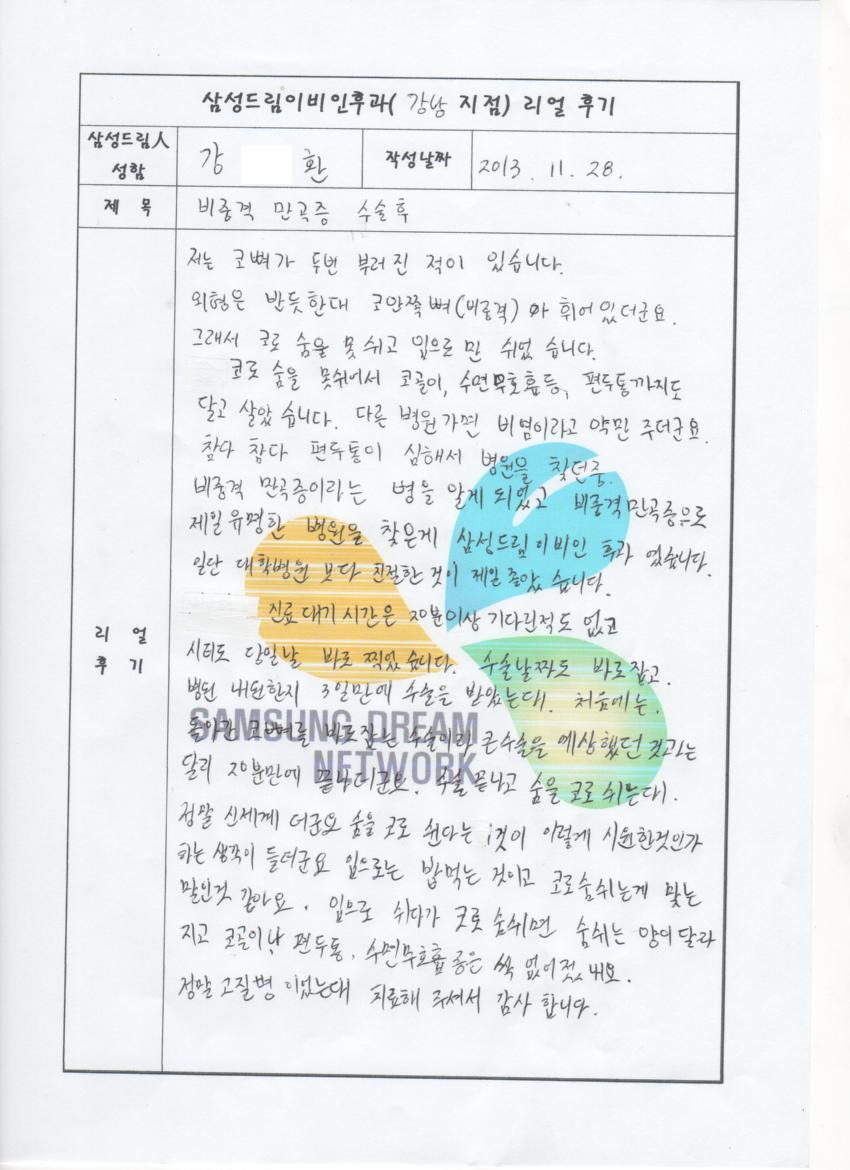 삼성드림이비인후과( 강남 지점) 리얼 후기
삼성드림人 성함
강 환
작성날짜
2013. 11. 28.
제 목
비중격 만곡증 수술후
리 얼
후 기
저는 코뼈가 두번 부러진 적이 있습니다.
외형은 반듯한대 코안쪽뼈(비중격)가 휘어있더군요.
그래서 코로 숨을 못쉬고 입으로만 쉬었습니다.
코로 숨을 못쉬어서 코골이, 수면무호흡등, 편두통까지도
달고 살았습니다. 다른 병원가면 비염이라고 약만 주더군요.
참다 참다 편두통이 심해서 병원을 찾던중.
비중격 만곡증이라는 병을 알게되었고 비중격만곡증으로
제일유명한 병원을 찾은게 삼성드림이비인 후과 였습니다.
일단 대학병원 보다 친절한 것이 제일 좋았습니다.
진료대기시간은 20분이상 기다린적도 없고
시티도 당일날 바로 찍었습니다. 수술날짜도 바로잡고.
병원 내원한지 3일만에 수술을 받았는대. 처음에는.
돌아간 코뼈를 바로잡는 수술이라 큰수술을 예상했던 것과는
달리 20분만에 끝나더군요. 수술끝나고 숨을 코로 쉬는대.
정말 신세계 더군요 숨을 코로 쉰다는 것이 이렇게 시원한것인가
하는 생각이 들더군요 입으로는 밥먹는 것이고 코로숨쉬는게 맞는
말인것 같아요. 입으로 쉬다가 코로 숨쉬면 숨쉬는 양이달라
지고 코골이나 편두통, 수면무호흡증은 싹 없어졌내요.
정말 고질병이었는대 치료해 주셔서 감사합니다.
SAMSUNG DREAM
NETWORK